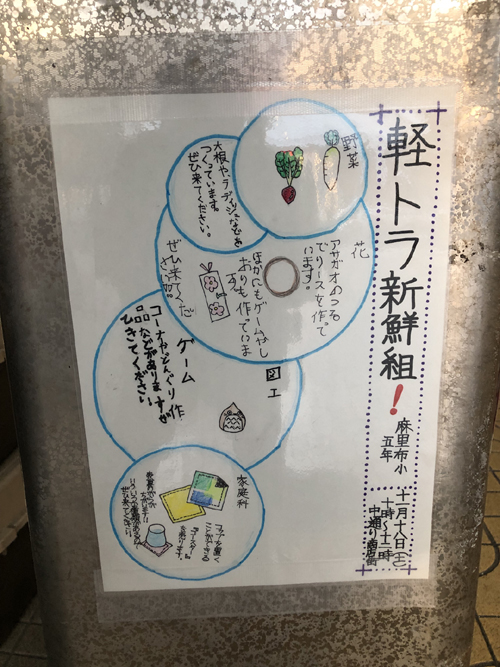 軽トラ新鮮組!
麻里布小
五年
十一月十八日(土)
十時～十二時
中通り商店街
野菜
大根や、ラディッシュなどを
つくっています。
ぜひ来てください。
花
アサガオのつる
でリースを作って
います。
ほかにもゲームやし
おりも作っていま
す。
ぜひ来てくだ
さい。
図工
ゲーム
コーナーやどんぐり作
品などがありますが
ひきてください
家庭科
コップを置く
ことができる
コースターを
売ります。